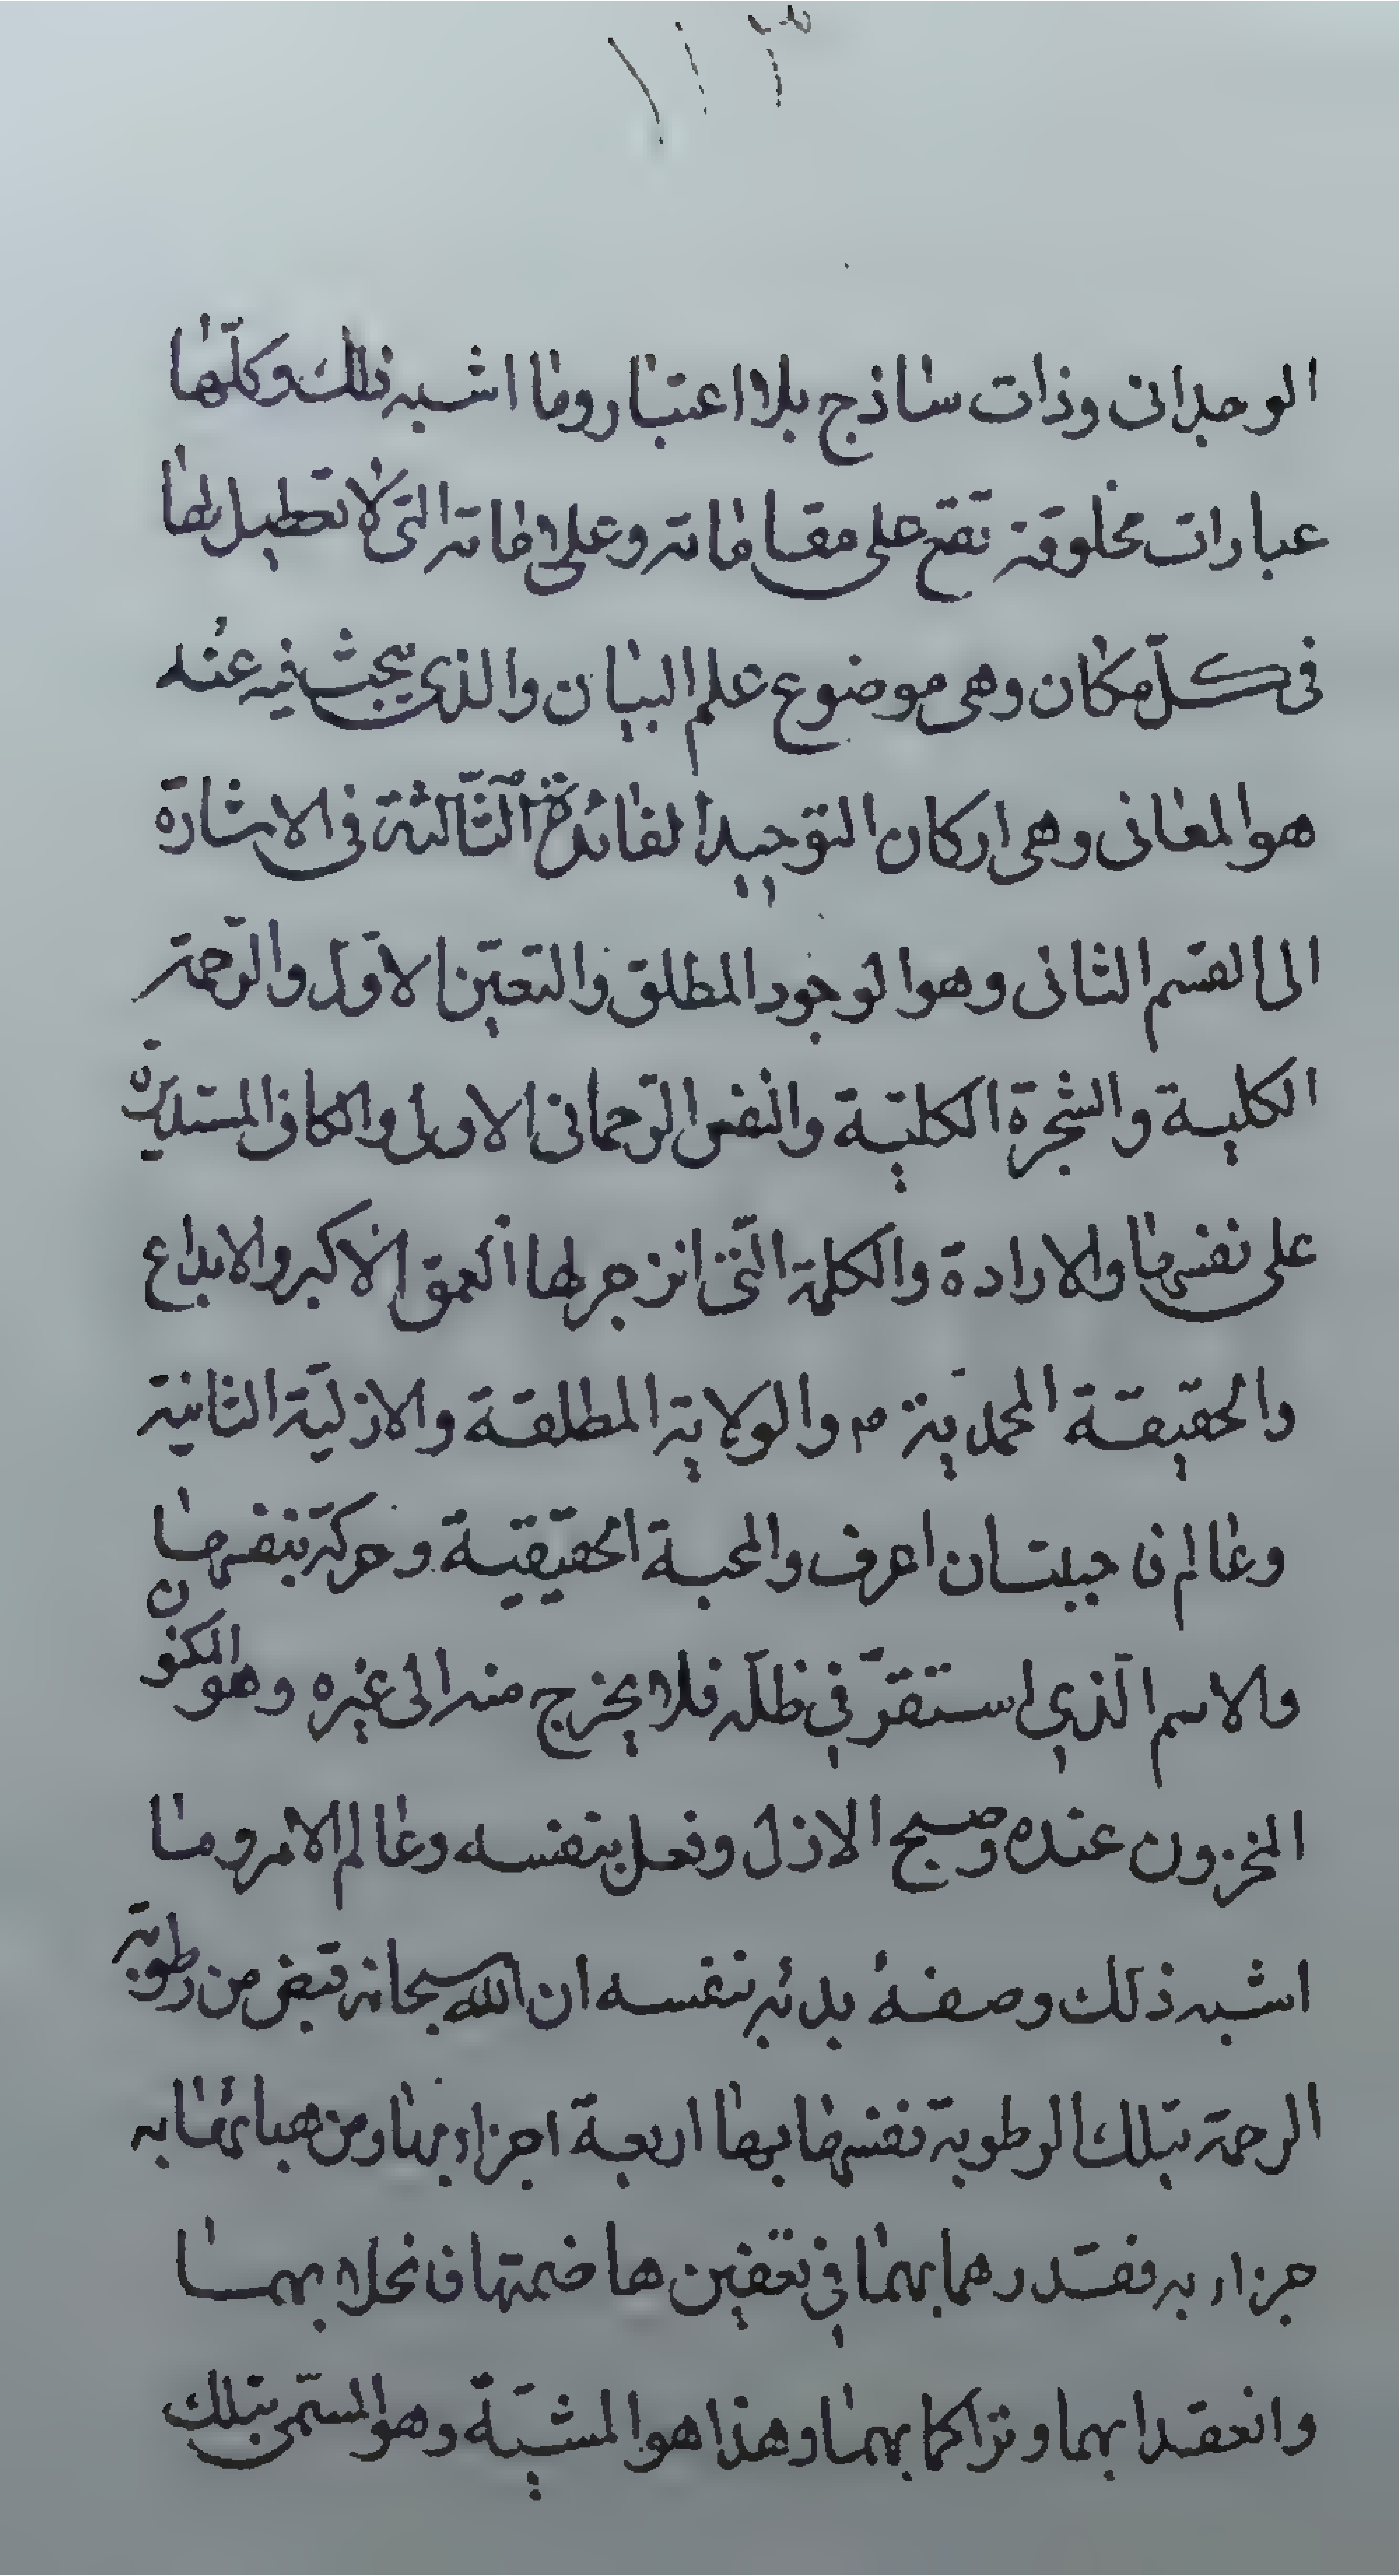 الوجدانى وذات ساذج بلا اعتبار وما اشبه ذلك وكلّها
عبارات مخلوقة تقع على مقاماته وعلاماته التى لا تعطيل لها
فى كلّ مكان وهى موضوع علم البيان والذى يبحث فيه عنه
هو المعانى وهى اركان التوحيد الفائدة الثّالثة فى الاشارة
الى القسم الثانى وهو الوجود المطلق والتعيّن الاوّل والرّحمة
الكلية والشجرة الكليّة والنفس الرّحمانى الاولى والكاف المستديرة
على نفسها والارادة والكلمة الّتى انزجر لها العمق الاكبر والابداع
والحقيقة المحمديّة م والولاية المطلقة والازليّة الثانية
وعالم فاحببت ان اعرف والمحبة الحقيقية وحركة بنفسها
والاسم الّذي استقرّ في ظلّه فلا يخرج منه الى غيره وهو المكنون
المخزون عنده وصبح الازل وفعل بنفسه وعالم الامر وما
اشبه ذلك وصفة بدئه بنفسه ان الله سبحانه قبض من رطوبة
الرحمة بتلك الرطوبة نفسها بها اربعة اجزاء بها ومن هبائها به
جزاء به فقدرهما بهما في تعفين هاضمتها فانحلا بهما
وانعقدا بهما وتراكما بهما وهذا هو المشيّة وهو المسمّى بتلك